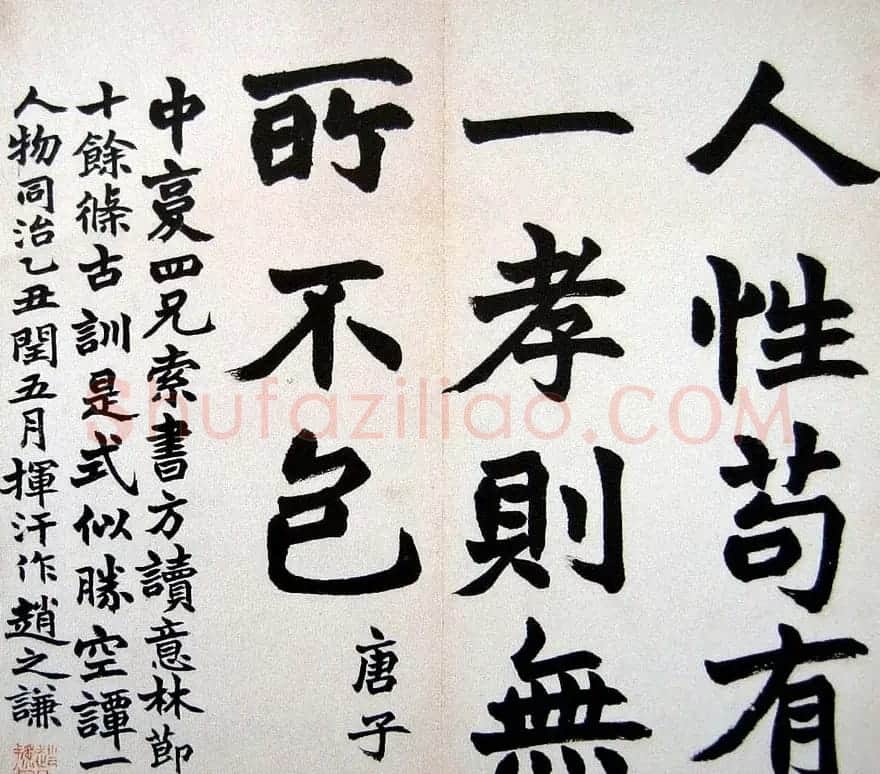 人性苟有
一孝則無
所不包
唐子
中四兄索書方讀意林節
十餘條古訓是式似勝空譚一
人物同治乙丑閏五月揮汗作趙之謙
Shufaziliao.COM